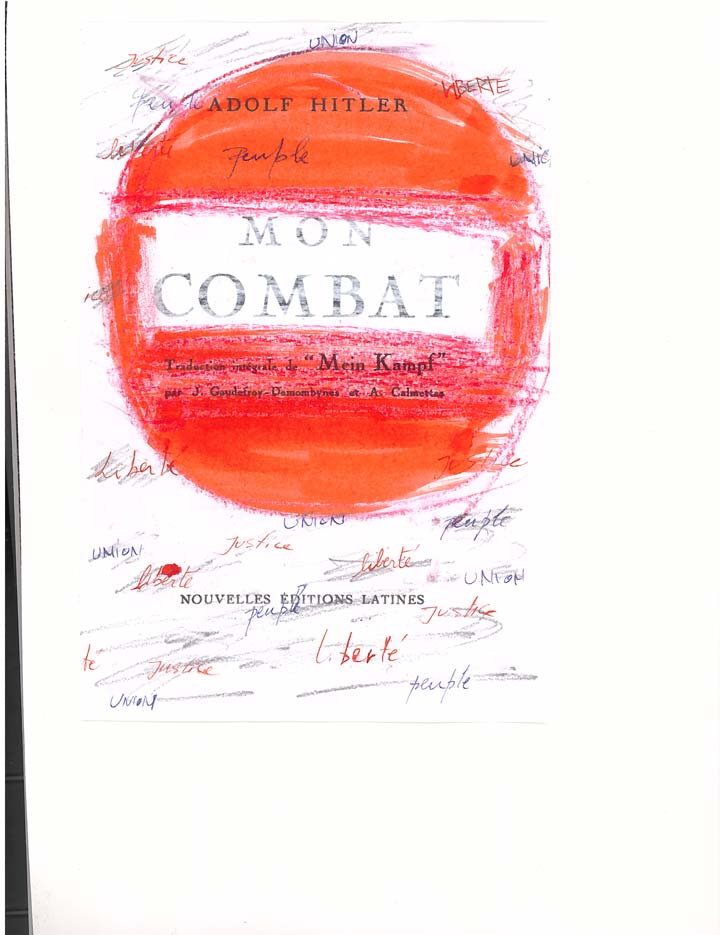 UNION
Justice
LIBERTE
Peuple
ADOLF HITLER
liberté
Peuple
UNIO
MON
COMBAT
Traduction intégrale de "Mein Kampf"
par J. Gaudefroy-Demombynes et A. Calmettes
Liberté
Justice
UNION
peuple
UNION
Justice
liberté
liberte
UNION
NOUVELLES ÉDITIONS LATINES
peuple
Justice
Liberté
té
Justice
peuple
UNION